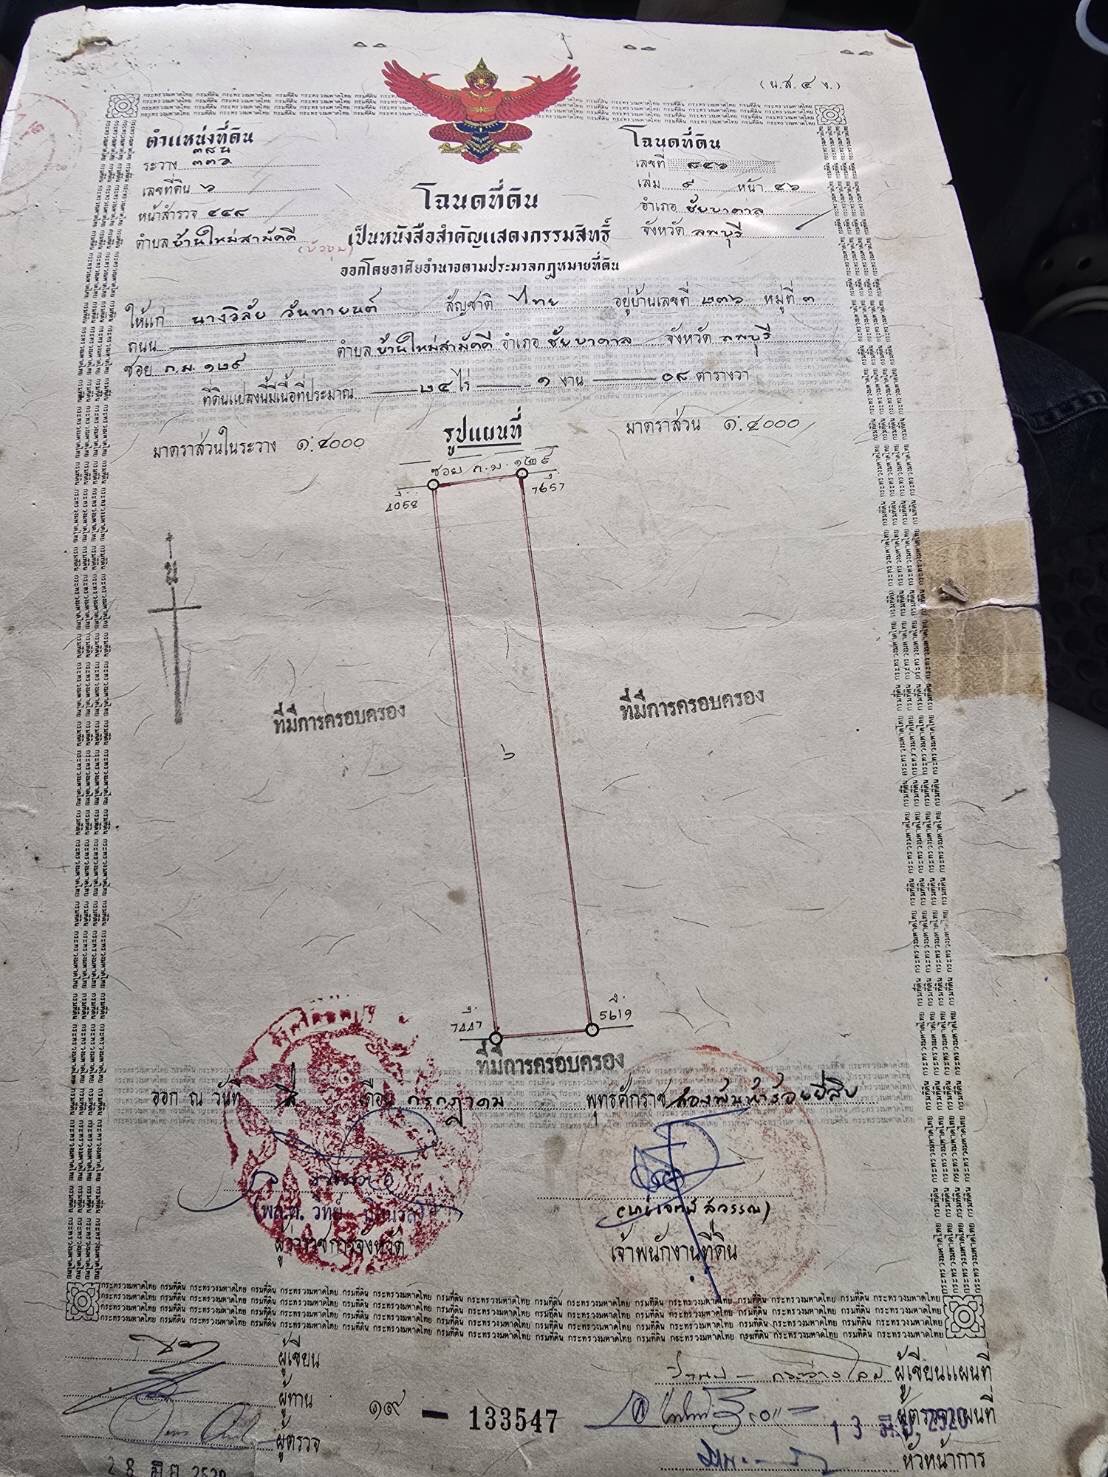 (น.ส.๔ จ.)
ตำแหน่งที่ดิน
โฉนดที่ดิน
ระวาง ๓๓๖
เลขที่ ๘๔๖
เลขที่ดิน ๖
เล่ม ๙ หน้า ๔๖
หน้าสำรวจ ๔๔๘
อำเภอ ชัยบาดาล
ตำบล บ้านใหม่สามัคคี
(บัวชุม)
จังหวัด ลพบุรี
โฉนดที่ดิน
เป็นหนังสือสำคัญแสดงกรรมสิทธิ์
ออกโดยอาศัยอำนาจตามประมวลกฎหมายที่ดิน
ให้แก่ นางวิลัย วันทายนต์ สัญชาติ ไทย อยู่บ้านเลขที่ ๒๓๖ หมู่ที่ ๓
ถนน ตำบล บ้านใหม่สามัคคี อำเภอ ชัยบาดาล จังหวัด ลพบุรี
ซอย ก.ม. ๑๒๙
ที่ดินแปลงนี้มีเนื้อที่ประมาณ ๒๔ ไร่ ๑ งาน ๐๘ ตารางวา
มาตราส่วนในระวาง ๑:๔๐๐๐
รูปแผนที่
มาตราส่วน ๑:๔๐๐๐
ซอย ก.ม. ๑๒๙
7657
ที่มีการครอบครอง
ที่มีการครอบครอง
๖
5619
ที่มีการครอบครอง
ออก ณ วันที่ สี่ เดือน กรกฎาคม พุทธศักราช สองพันห้าร้อยยี่สิบ
ผู้ว่าราชการจังหวัด
เจ้าพนักงานที่ดิน
กระทรวงมหาดไทย กรมที่ดิน
ผู้เขียน
ผู้เขียนแผนที่
ผู้ทาน
๑๙ - 133547
ผู้ตรวจแผนที่
13 มิ.ย. 2520
ผู้ตรวจ
หัวหน้าการ